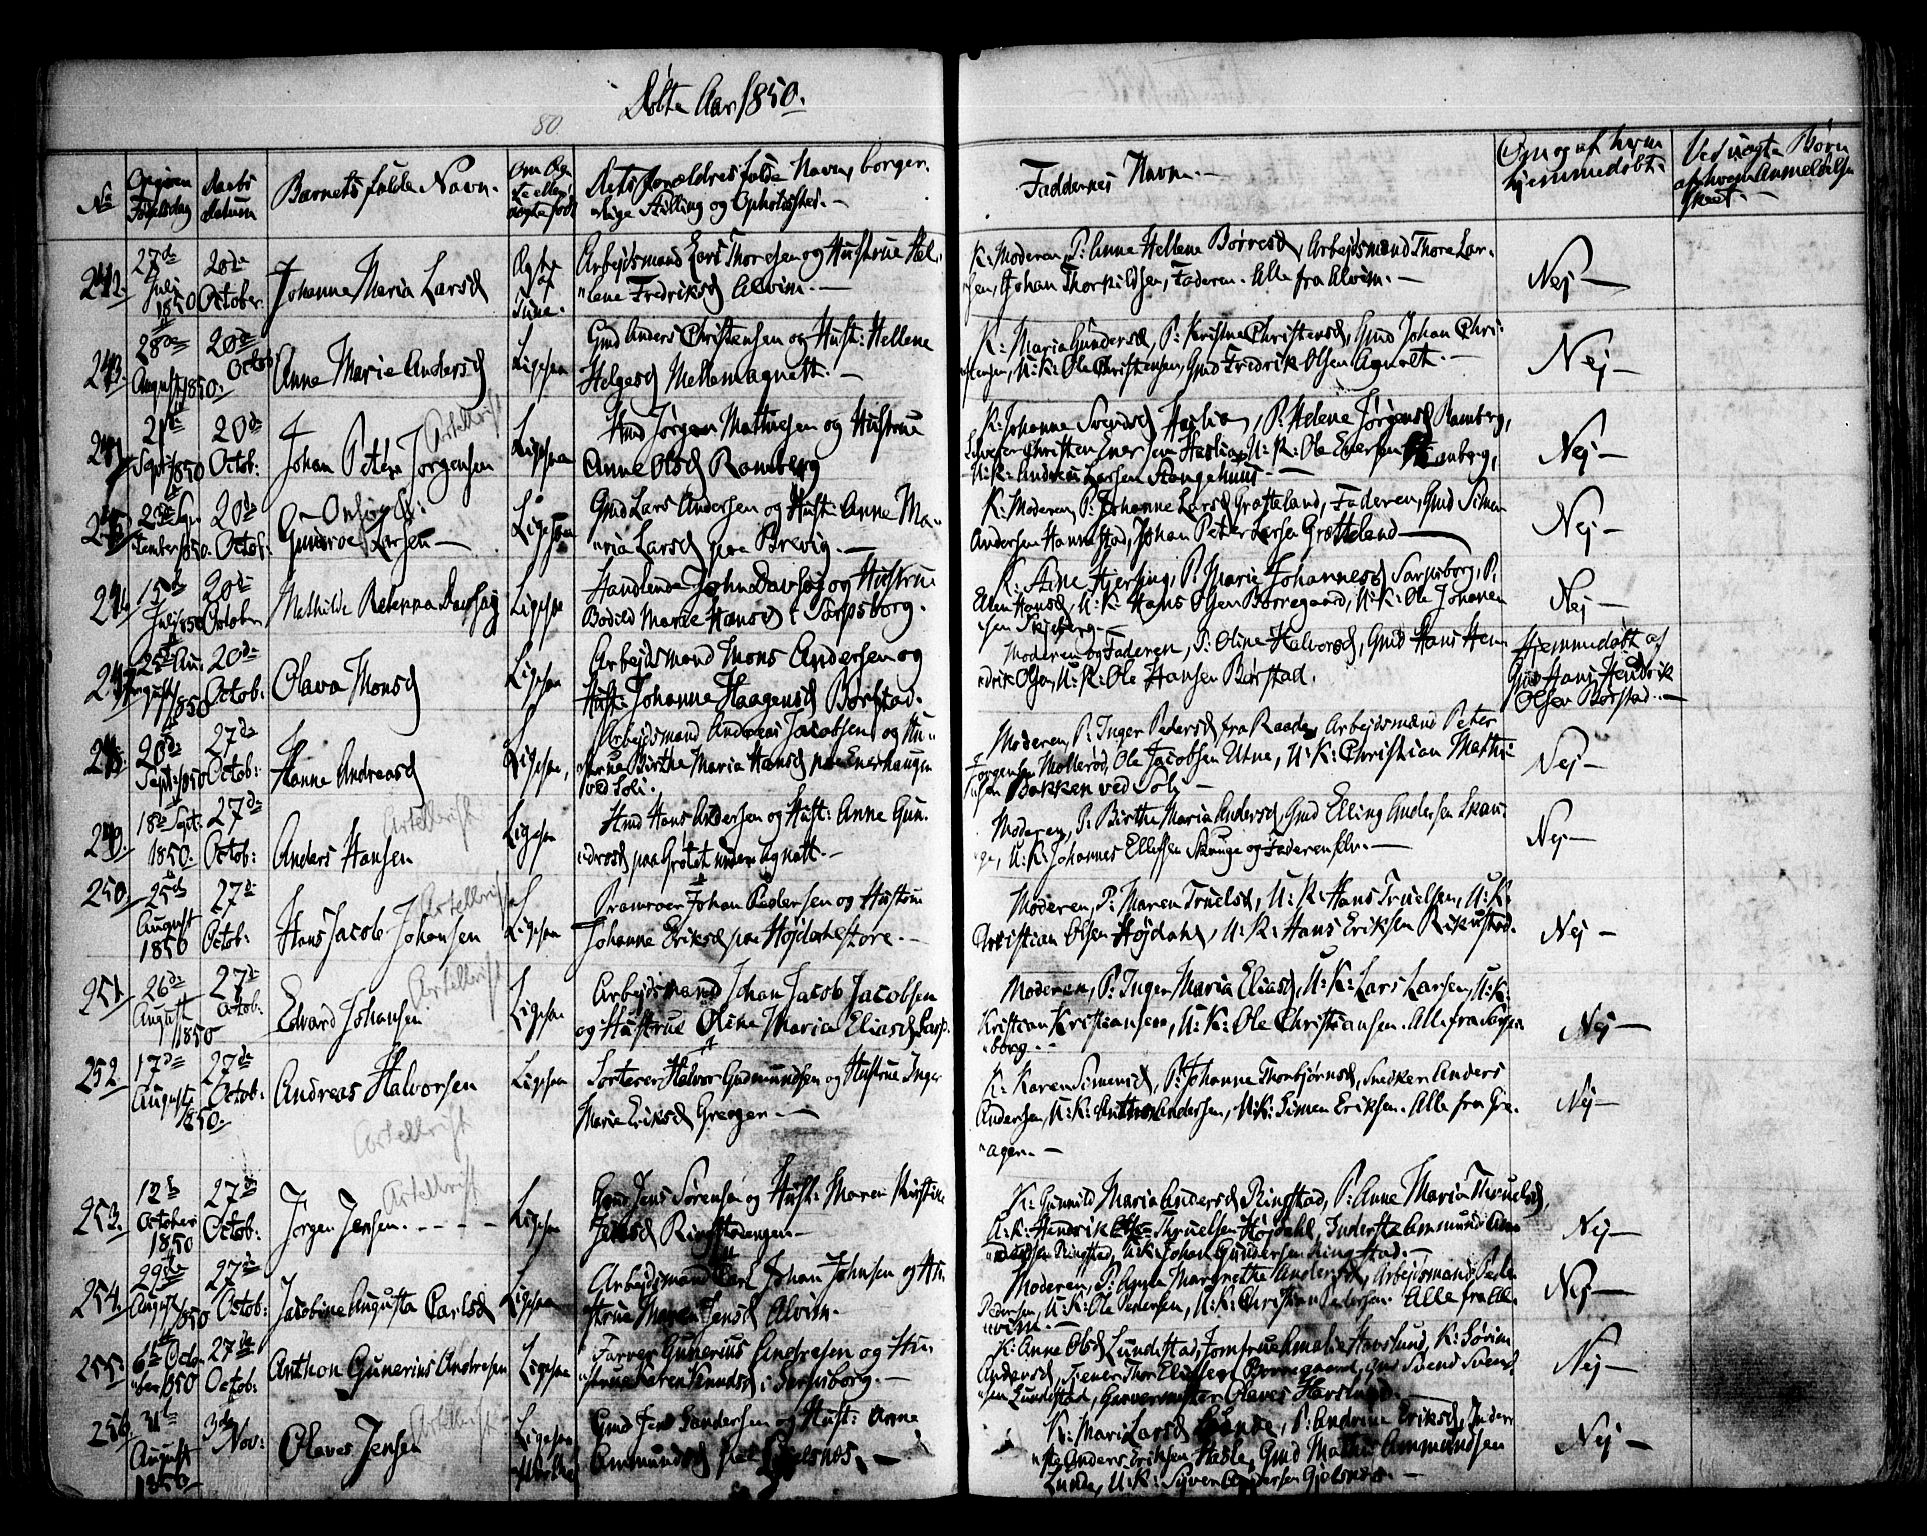 Døbte Aar 1850.
80
No
Opgiven Fødselsdag
Daabs Datum
Barnets fulde Navn.
Om Ægte eller uægte født
Dets Forældres fulde Navne, borger-
"lige Stilling og Opholdssted.
Faddernes Navne.
Om og af hvem hjemmedøbt.
Ved uægte Børn af hvem Anmeldelsen skeet.
242. 27de Juli 1850 20de October Johanne Maria Larsd Ægte Tune.
Arbejdsmand Lars Thoresen og Hustrue Hel-
"lene Fredriksd Alvim.
K: Moderen, P: Anne Hellene Børresd, Arbejdsmand Thore Lar-
"sen, Johan Thorkildsen, Faderen. Alle fra Alvim.
Nej
243. 28de August 1850. 20de Octob: Anne Marie Andersd Ligesaa
Gmd Anders Christensen og Hust: Hellene
Helgesd Mellemagnatt.
K: Maria Gundersd, P: Kristine Christensd, Gmd Johan Chri-
"stensen, U:K: Ole Christensen, Gmd Fredrik Olsen Agnatt.
Nej
244. 21de Septbr 1850 20de Octob: Johan Peter Jørgensen Ligesaa
Attestkrift
Hmd Jørgen Mathiesen og Hustrue
Anne Olsd Ramberg
K: Johanne Svendsd Haslia, P: Helene Jørgensd Ramberg,
Christen Enersen Haslia, U:K: Ole Enersen Ramberg,
U:K: Andreas Larsen Stangehuus.
Nej
245. 2den September 1850. 20de Octob: Gunroe Larsen Ligesaa
Gmd Lars Andersen og Hust: Anne Ma-
"ria Larsd paa Brevig.
K: Moderen, P: Johanne Larsd Grøtteland, Faderen, Gmd Simen
Andersen Hannestad, Johan Peter Larsen Grøtteland
Nej
246. 15de Juli 1850 20de October Mathilde Rebekka Ligesaa
Handlende John og Hustrue
Bodild Marie Hansd i Sarpsborg.
K: Hjersing, P: Marie Johannesd Sarpsborg, P:
Elen Hansd, U:K: Hans Olsen Borregaard, U:K: Ole Johannes-
"sen Skjeberg.
Nej
247. 25de August 1850 20de Octob: Olava Monsd Ligesaa
Arbejdsmand Mons Andersen og
Hust: Johanne Haagensd Borstad.
Moderen og Faderen, P: Oline Halvorsd, Gmd Hans Hen-
"drik Olsen, U:K: Ole Hansen Borstad.
Hjemmedøbt af
Gmd Hans Hendrik
Olsen Borstad.
248. 28de Sept: 1850 27de Octob: Hanne Andreasd Ligesaa,
Arbejdsmand Andreas Jacobsen og Hu-
"strue Birthe Maria Hansd paa Enerhaugen
ved Soli.
Moderen, P: Inger Pedersd fra Raade, Arbejdsmand Peter
Jørgensen Møllerød, Ole Jacobsen Utne, U:K: Christian Mathi-
"sen Bakken ved Soli
Nej
249. 18de Sept: 1850. 27de Octob: Anders Hansen Ligesaa
Attestkrift
Hmd Hans Andersen og Hust: Anne Gun-
"drosd paa Grøtet under Agnatt.
Moderen, P: Birthe Maria Andersd, Gmd Elling Andersen Skau-
"ge, U:K: Johannes Ellefsen Skauge og Faderen selv.
Nej
250. 25de August 1850 27de Octob: Hans Jacob Johansen Ligesaa
Attestkrift
Pramroer Johan Pedersen og Hustrue
Johanne Eriksd paa Højdahl store.
Moderen, P: Maren Truelsd, U:K: Hans Truelsen, U:K:
Christian Olsen Højdahl, U:K: Hans Eriksen Rikustad.
Nej
251. 26de August 1850 27de Octob: Edvard Johansen Ligesaa
Attestkrift
Arbejdsmand Johan Jacob Jacobsen
og Hustrue Oline Maria Eliasd Sarp.
Moderen, P: Inger Maria Eliasd, U:K: Lars Larsen, U:K:
Kristian Kristiansen, U:K: Ole Christiansen. Alle fra Sarps-
"borg.
Nej
252. 17de August 1850. 27de Octob: Andreas Halvorsen Ligesaa
Attestkrift
Sorterer Halvor Gudmundsen og Hustrue Inger
Marie Eriksd Greager.
K: Karen Simensd, P: Johanne Thorbjørnsd, Snedker Anders
Andersen, U:K: Andersen, U:K: Simen Eriksen. Alle fra Gre-
"ager.
Nej
253. 12de October 1850 27de Octob: Jørgen Jensen. Ligesaa
Attestkrift
Gmd Jens Sørensen og Hust: Maren Kirstine
Jensd Ringstadengen
K: Gunild Maria Andersd Ringstad, P: Anne Maria Thruelsd,
U:K: Hendrik Thruelsen Højdahl, Inderste Ammund
Ringstad, U:K: Johan Gundersen Ringstad.
Nej
254. 29de August 1850 27de Octob: Jacobine Augusta Carlsd Ligesaa
Arbejdsmand Carl Johan Johnsen og Hu-
"strue Maren Jensd Alvim.
Moderen, P: Anna Margrethe Andersd, Arbejdsmand Peder
Pedersen, U:K: Ole Pedersen, U:K: Christian Pedersen. Alle fra Al-
"vim.
Nej
255. 6te October 1850 27de Octob: Anthon Gunerius Andresen Ligesaa
Farver Gunerius Andresen og Hu-
"strue Karen Knudsd i Sarpsborg.
K: Anne Olsd Lundestad, Jomfrue Amalie Hafslund, K: Søvine
Andersd, Tjener Thor Elliefsen Borregaard, Gmd Svend Svend-
"sen Lundestad, Garvermester Olaves Hafslund.
Nej
256. 31te August 1850 3die Nov: Olaves Jensen Ligesaa
Attestkrift
Gmd Jens Gundersen og Hust: Anne
Ammundsd paa Gjelsnes.
K: Mari Larsd Lunde, P: Andrine Eriksd, Inder-
"ste Anders Eriksen Hasle, Gmd Mathis Ammundsen
Lunde, U:K: Syver Andersen Gjelsnes.
Nej